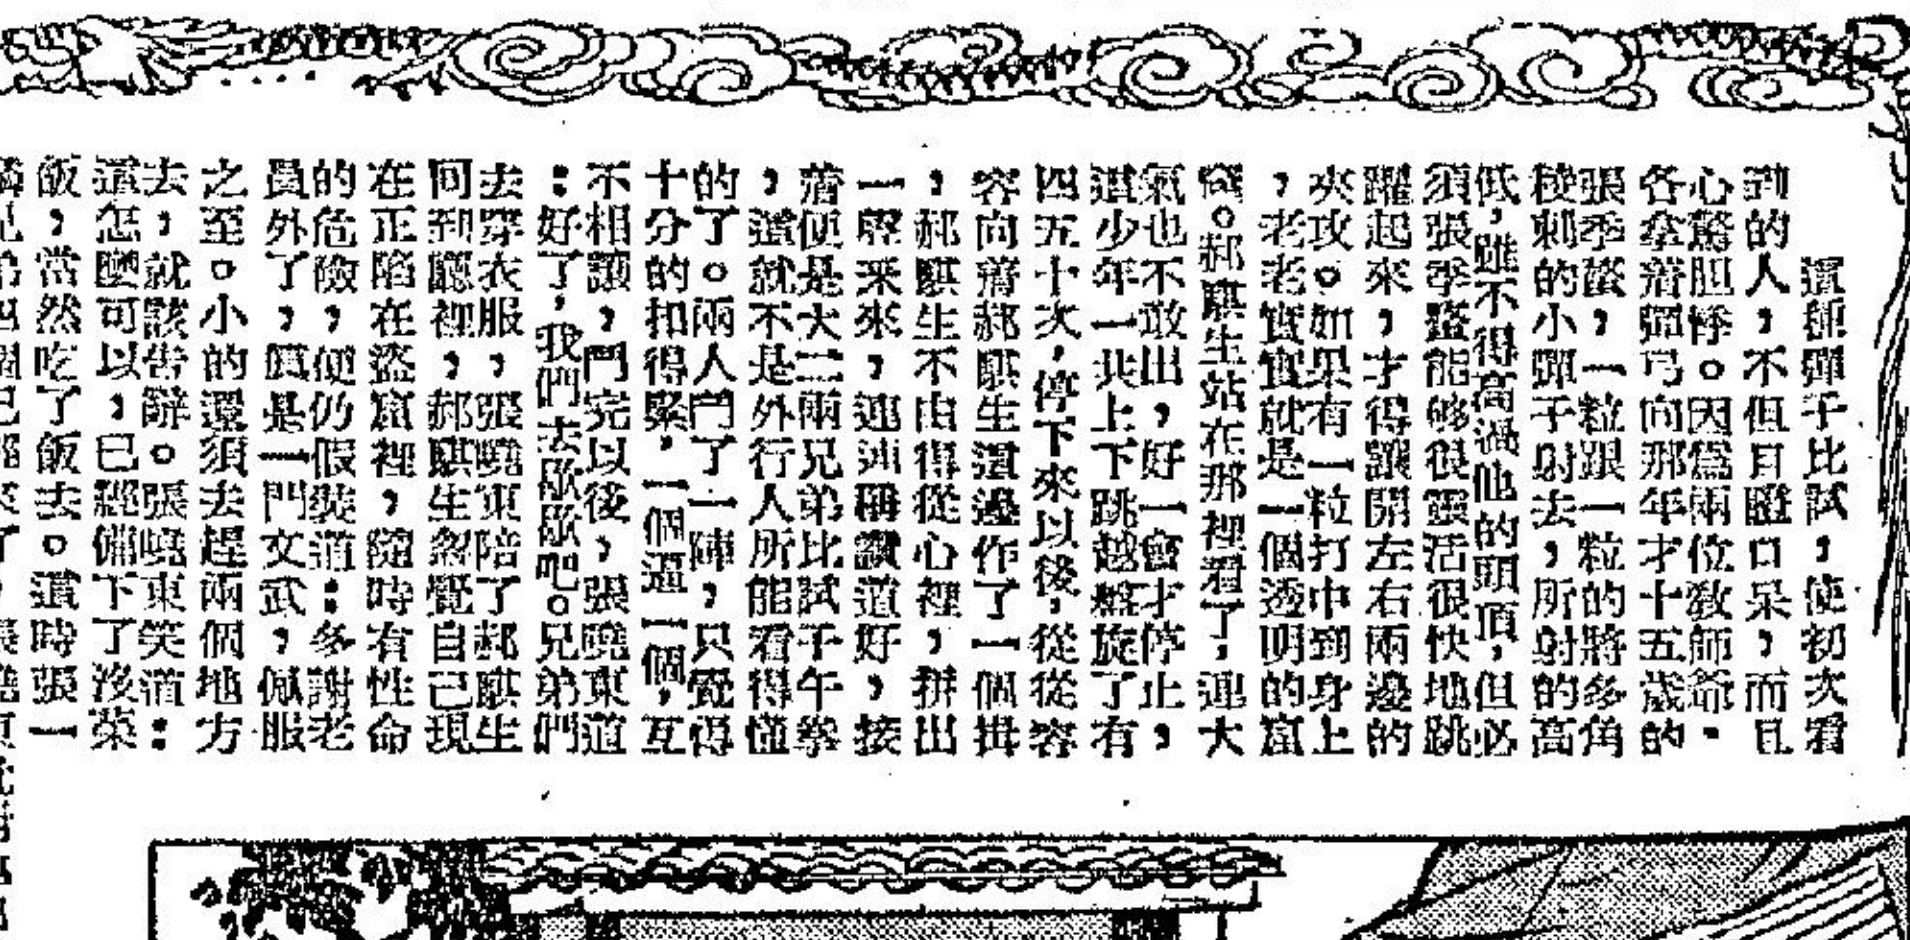 這種彈子比試，使初次看
到的人，不但目瞪口呆，而且
心驚胆悸。因爲兩位敎師爺，
各拿着彈弓向那年才十五歲的
張季蠻，一粒跟一粒的將多角
稜刺的小彈子射去，所射的高
低，雖不得高過他的頭頂，但必
須張季蠻能够很靈活很快地跳
躍起來，才得讓開左右兩邊的
夾攻。如果有一粒打中到身上
，老老實實就是一個透明的窟
窿。郝騏生站在那裡看了，連大
氣也不敢出，好一會才停止，
這少年一共上下跳越盤旋了有
四五十次，停下來以後，從從容
容向着郝騏生這邊作了一個揖
，郝騏生不由得從心裡，拼出
一聲采來，連連稱讚道好，接
着便是大二兩兄弟比試子午拳
，這就不是外行人所能看得懂
的了。兩人鬥了一陣，只覺得
十分的扣得緊，一個逼一個，互
不相讓，鬥完以後，張曉東道
：好了，我們去歇歇吧。兄弟們
去穿衣服，張曉東陪了郝騏生
回到廳裡，郝騏生忽覺自己現
在正陷在盜窟裡，隨時有性命
的危險，便仍假裝道：多謝老
員外了，眞是一門文武，佩服
之至。小的還須去趕兩個地方
去，就該告辭。張曉東笑道：
這怎麼可以，已經備下了沒菜
飯，當然吃了飯去。這時張一